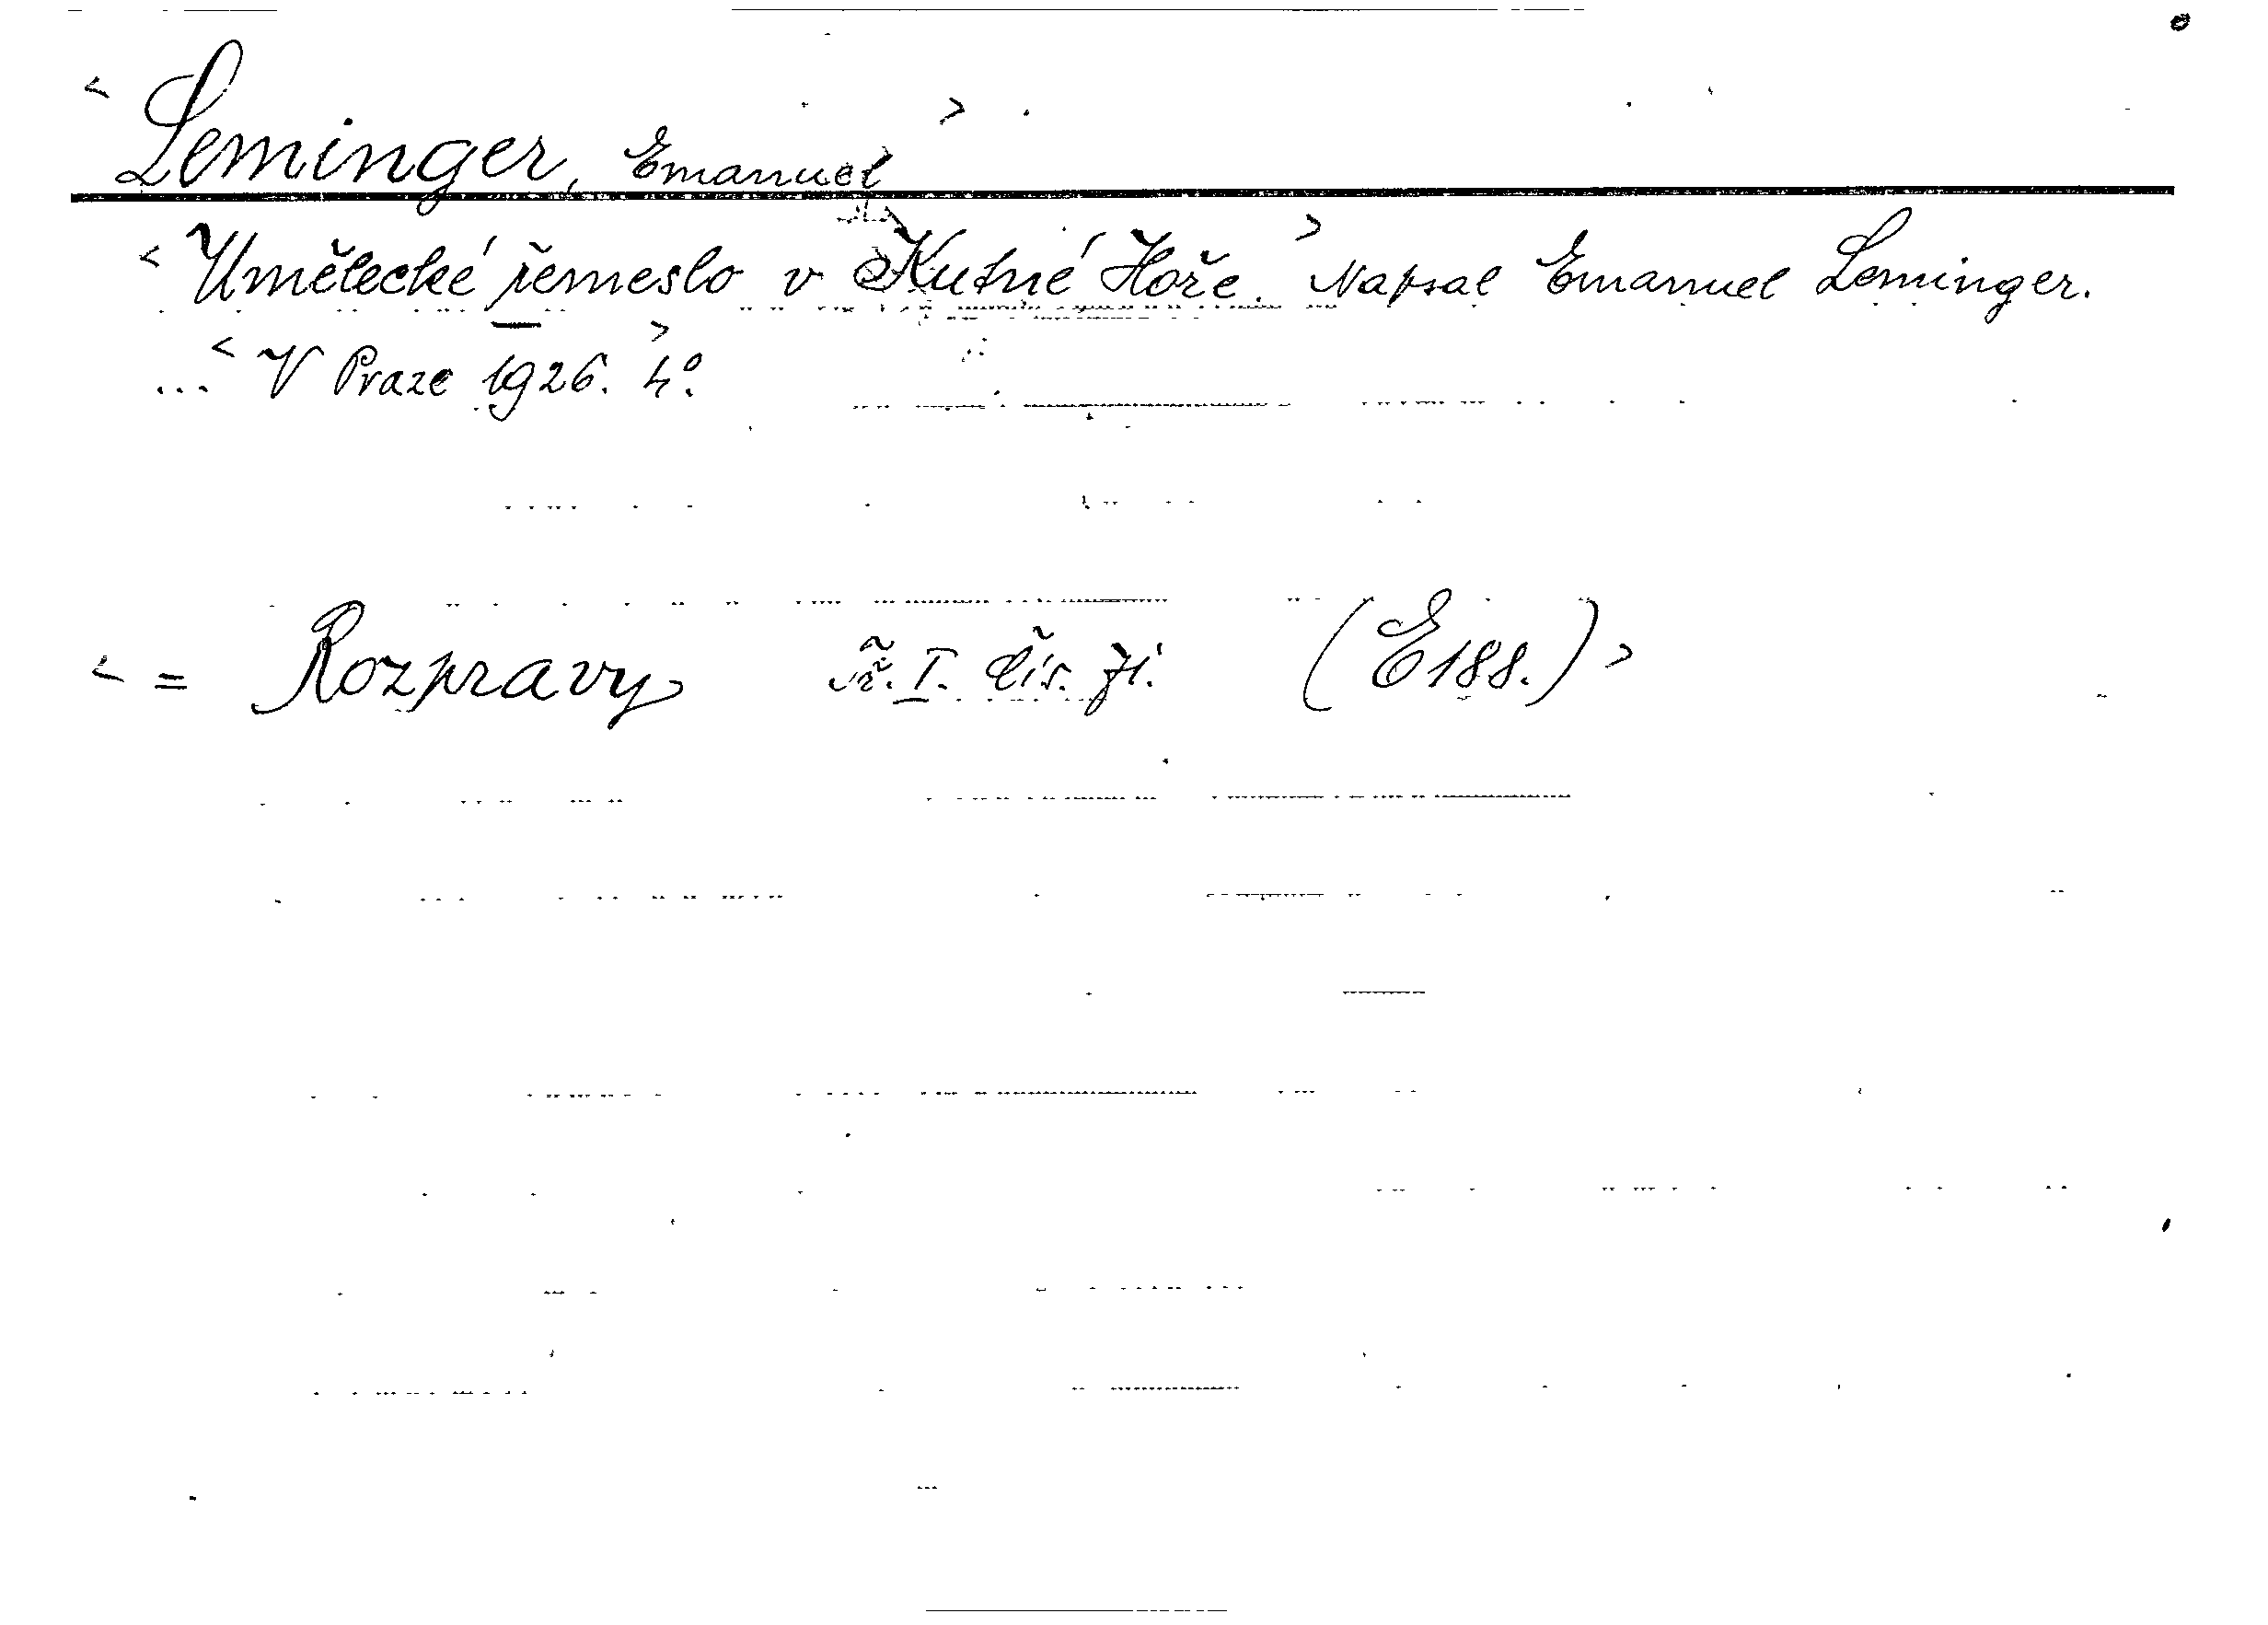 < Leminger, Emanuel >
< Umělecké řemeslo v Kutné Hoře. > Napsal Emanuel Leminger.
... < V Praze 1926. > 4°.
< = Rozpravy tř. I. čís. 71. (E188.) >